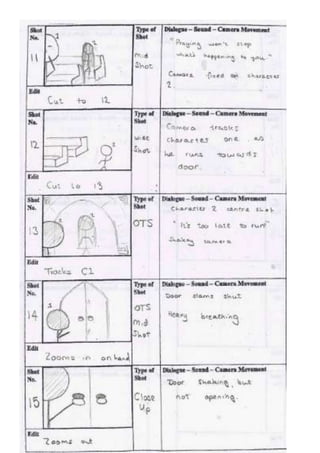 Shot No.
Type of Shot
Dialogue – Sound – Camera Movement
11
Mid Shot
"Praying won't stop
what's happening to you."
Camera fixed on character
2.
Edit
Cut to 12
Shot No.
Type of Shot
Dialogue – Sound – Camera Movement
12
wide Shot
Camera tracks
character one as
he runs towards
door.
Edit
Cut to 13
Shot No.
Type of Shot
Dialogue – Sound – Camera Movement
13
OTS
Character 2 centre shot
"It's too late to run"
Shakey camera
Edit
Tracks C1
Shot No.
Type of Shot
Dialogue – Sound – Camera Movement
14
OTS
Mid
Shot
Door slams shut
Heavy breathing
Edit
Zooms in on hand
Shot No.
Type of Shot
Dialogue – Sound – Camera Movement
15
Close
Up
Door shaking, but
not opening.
Edit
Zooms out